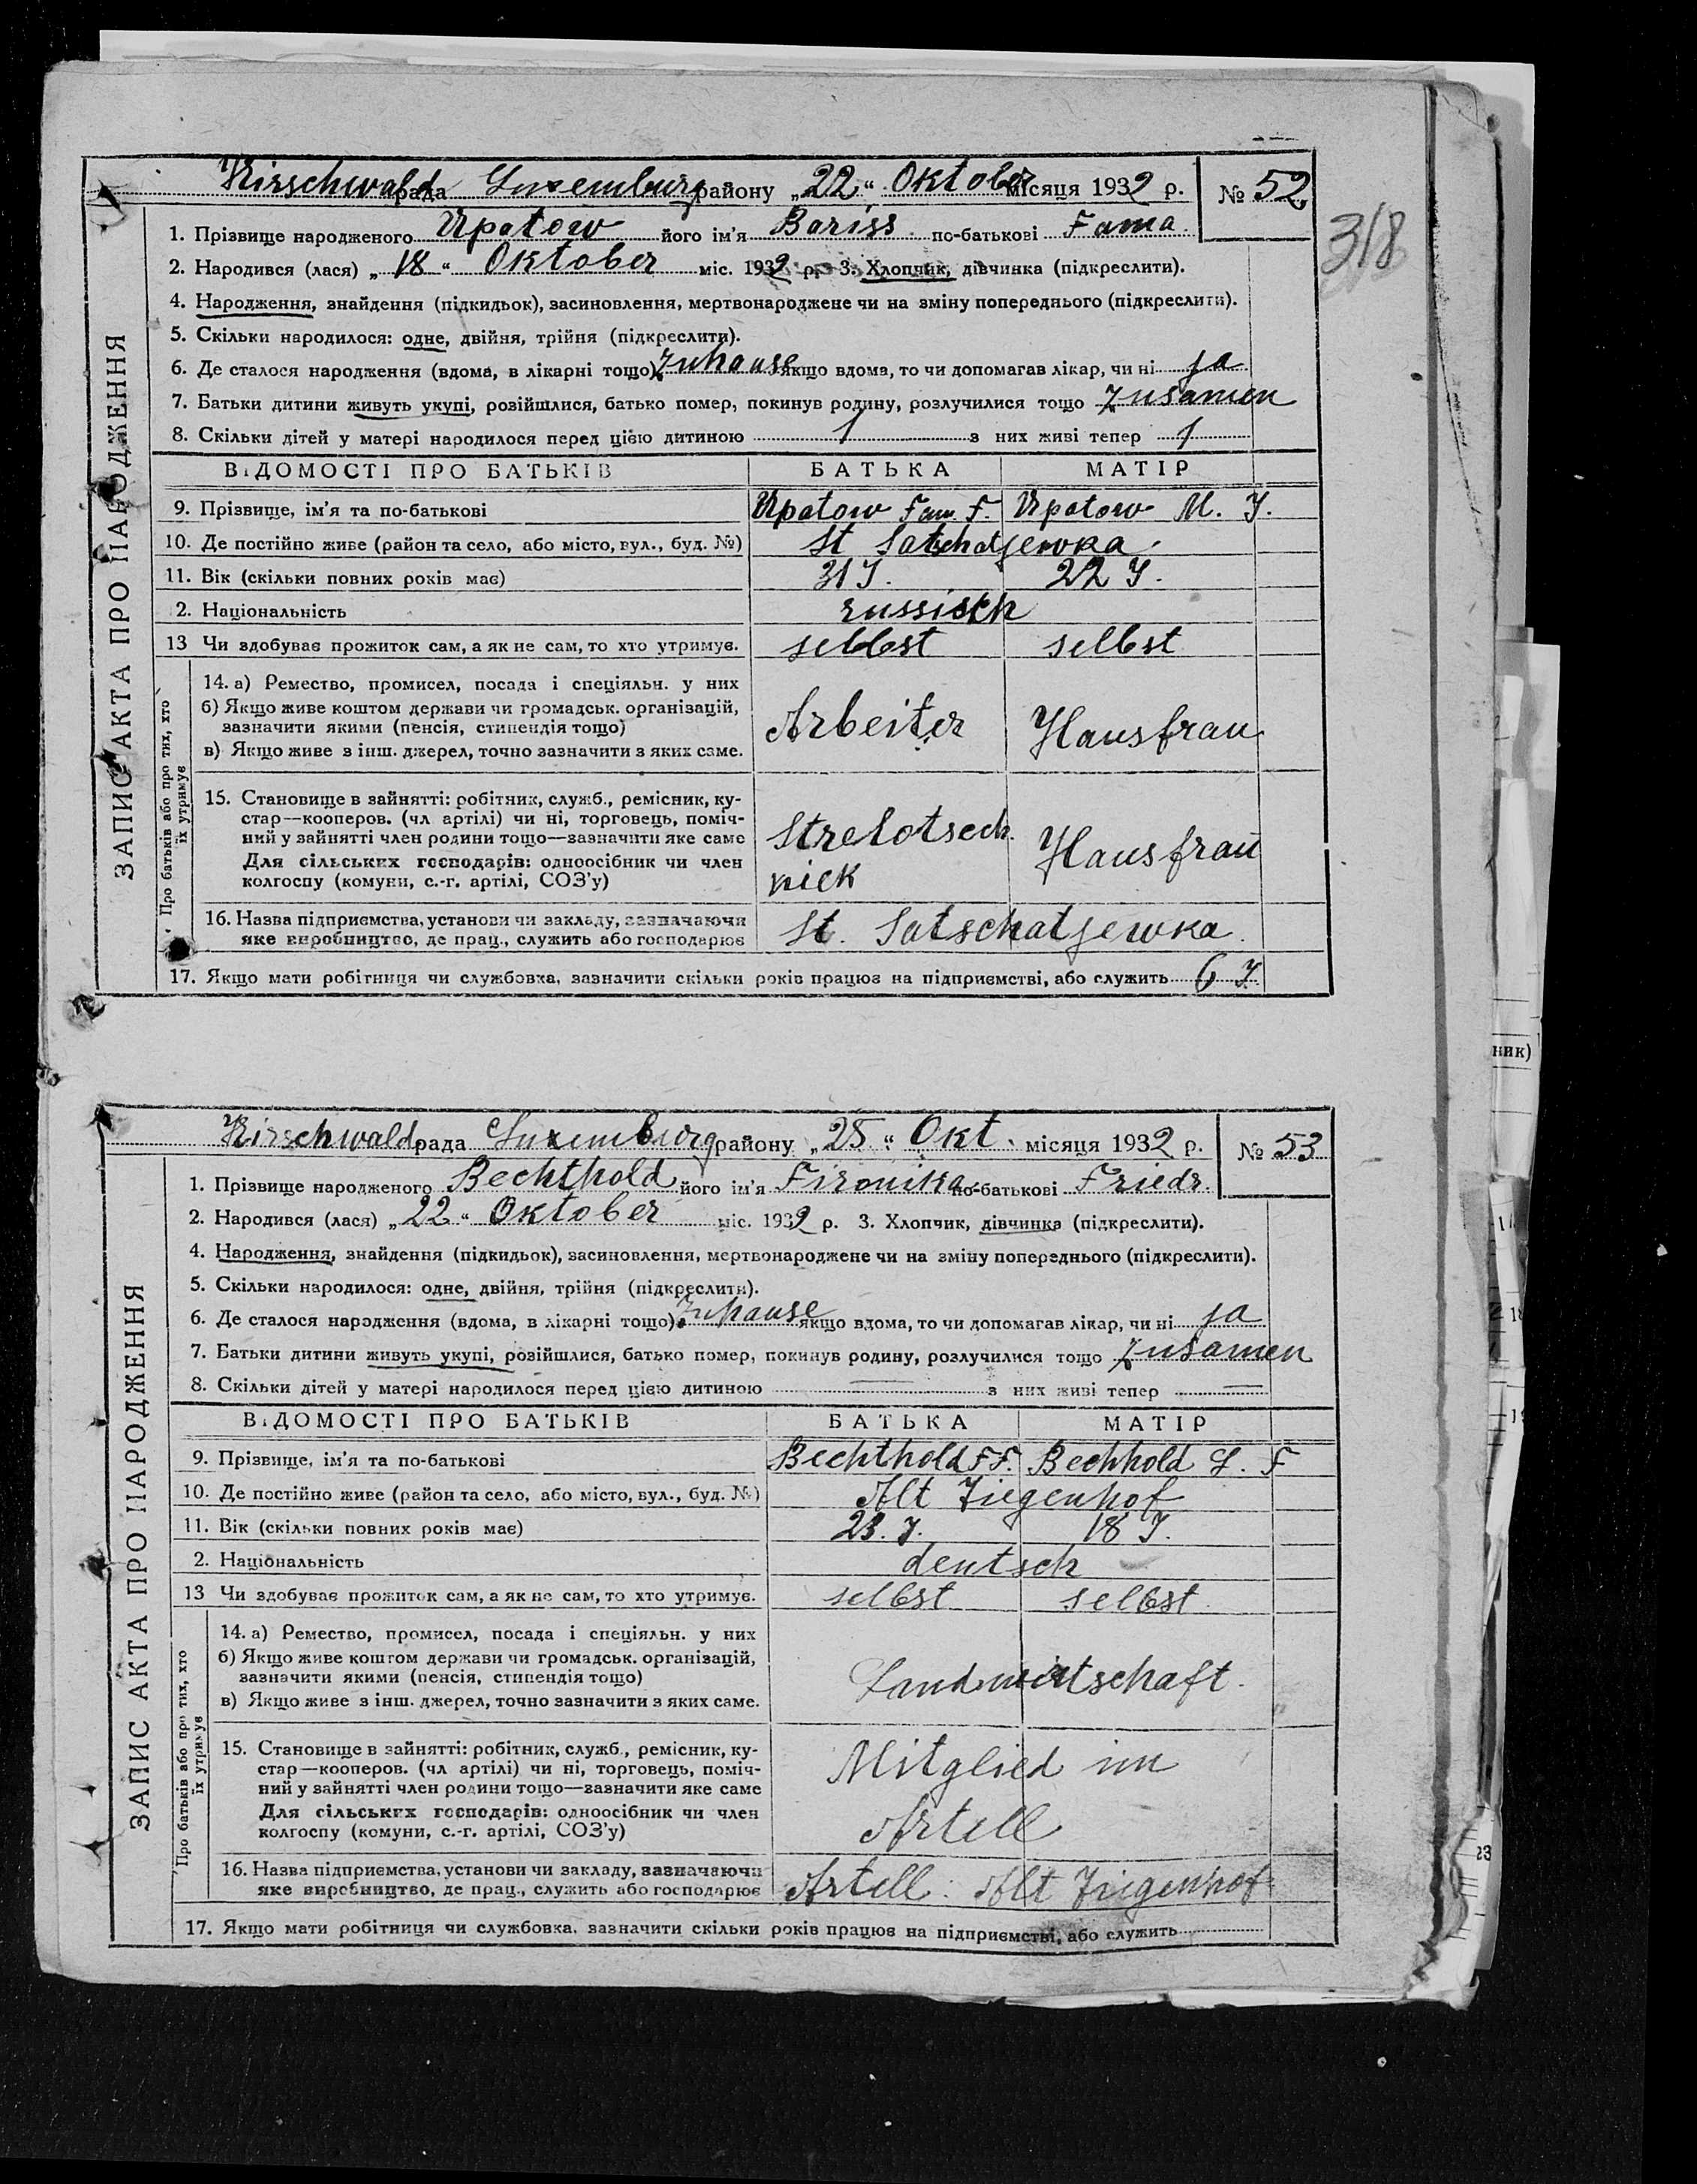 Kirschwald рада Luxemburg району „22“ Oktober місяця 1932 р. № 52
318
1. Прізвище народженого Upatow його ім'я Bariss по-батькові Fama
2. Народився (лася) „18“ Oktober міс. 1932 р. 3. Хлопчик, дівчинка (підкреслити).
4. Народження, знайдення (підкидьок), засиновлення, мертвонароджене чи на зміну попереднього (підкреслити).
5. Скільки народилося: одне, двійня, трійня (підкреслити).
6. Де сталося народження (вдома, в лікарні тощо) Zuhause якщо вдома, то чи допомагав лікар, чи ні ja
7. Батьки дитини живуть укупі, розійшлися, батько помер, покинув родину, розлучилися тощо Zusamen
8. Скільки дітей у матері народилося перед цією дитиною 1 з них живі тепер 1
ВІДОМОСТІ ПРО БАТЬКІВ БАТЬКА МАТІР
9. Прізвище, ім'я та по-батькові Upatow Fam. F. Upatow M. J.
10. Де постійно живе (район та село, або місто, вул., буд. №) St Satschatjewka
11. Вік (скільки повних років має) 31 J. 22 J.
2. Національність russisch
13 Чи здобуває прожиток сам, а як не сам, то хто утримує. selbst selbst
14. а) Ремество, промисел, посада і спеціяльн. у них
б) Якщо живе коштом держави чи громадськ. організацій,
зазначити якими (пенсія, стипендія тощо)
в) Якщо живе з інш. джерел, точно зазначити з яких саме.
Arbeiter Hausfrau
15. Становище в зайнятті: робітник, служб., ремісник, ку-
стар—кооперов. (чл артілі) чи ні, торговець, поміч-
ний у зайнятті член родини тощо—зазначити яке саме
Для сільських господарів: одноосібник чи член
колгоспу (комуни, с.-г. артілі, СОЗ'у)
Strelotsch
niek
Hausfrau
16. Назва підприємства, установи чи закладу, зазначаючи
яке виробництво, де прац., служить або господарює
St. Satschatjewka
17. Якщо мати робітниця чи службовка, зазначити скільки років працює на підприємстві, або служить 6 J
ЗАПИС АКТА ПРО НАРОДЖЕННЯ
Про батьків або про тих, хто
їх утримує
ник)
Kirschwald рада Luxemburg району „25“ Okt. місяця 1932 р. № 53
1. Прізвище народженого Bechthold його ім'я Fironika по-батькові Friedr.
2. Народився (лася) „22“ Oktober міс. 1932 р. 3. Хлопчик, дівчинка (підкреслити).
4. Народження, знайдення (підкидьок), засиновлення, мертвонароджене чи на зміну попереднього (підкреслити).
5. Скільки народилося: одне, двійня, трійня (підкреслити).
6. Де сталося народження (вдома, в лікарні тощо) Zuhause якщо вдома, то чи допомагав лікар, чи ні ja
7. Батьки дитини живуть укупі, розійшлися, батько помер, покинув родину, розлучилися тощо Zusamen
8. Скільки дітей у матері народилося перед цією дитиною — з них живі тепер —
ВІДОМОСТІ ПРО БАТЬКІВ БАТЬКА МАТІР
9. Прізвище, ім'я та по-батькові Bechthold F F. Bechhold L. F
10. Де постійно живе (район та село, або місто, вул., буд. №) Alt Ziegenhof
11. Вік (скільки повних років має) 23. J. 18 J.
2. Національність deutsch
13 Чи здобуває прожиток сам, а як не сам, то хто утримує. selbst selbst
14. а) Ремество, промисел, посада і спеціяльн. у них
б) Якщо живе коштом держави чи громадськ. організацій,
зазначити якими (пенсія, стипендія тощо)
в) Якщо живе з інш. джерел, точно зазначити з яких саме.
Landwirtschaft.
15. Становище в зайнятті: робітник, служб., ремісник, ку-
стар—кооперов. (чл артілі) чи ні, торговець, поміч-
ний у зайнятті член родини тощо—зазначити яке саме
Для сільських господарів: одноосібник чи член
колгоспу (комуни, с.-г. артілі, СОЗ'у)
Mitglied im
Artell
16. Назва підприємства, установи чи закладу, зазначаючи
яке виробництво, де прац., служить або господарює
Artell. Alt Ziegenhof
17. Якщо мати робітниця чи службовка, зазначити скільки років працює на підприємстві, або служить
ЗАПИС АКТА ПРО НАРОДЖЕННЯ
Про батьків або про тих, хто
їх утримує
23